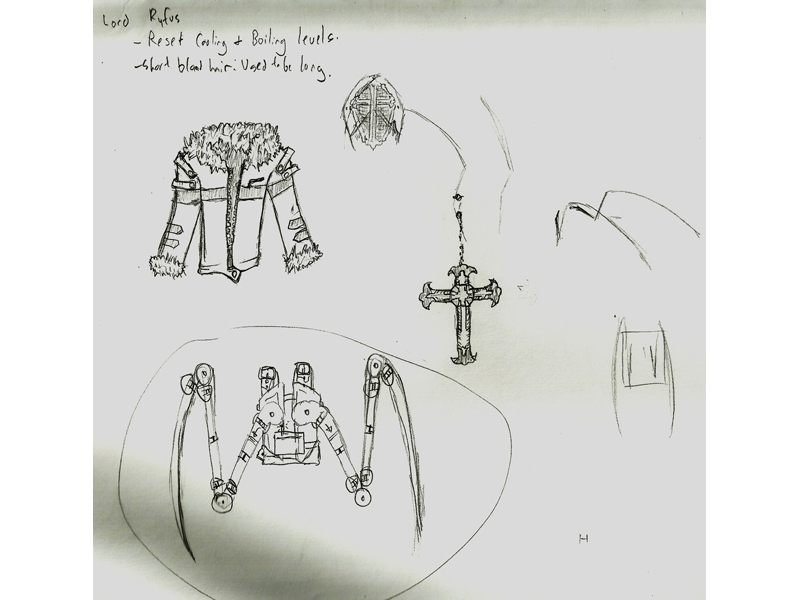 Lord Rufus
- Reset Cooling & Boiling levels.
- short blond hair: Used to be long.
H